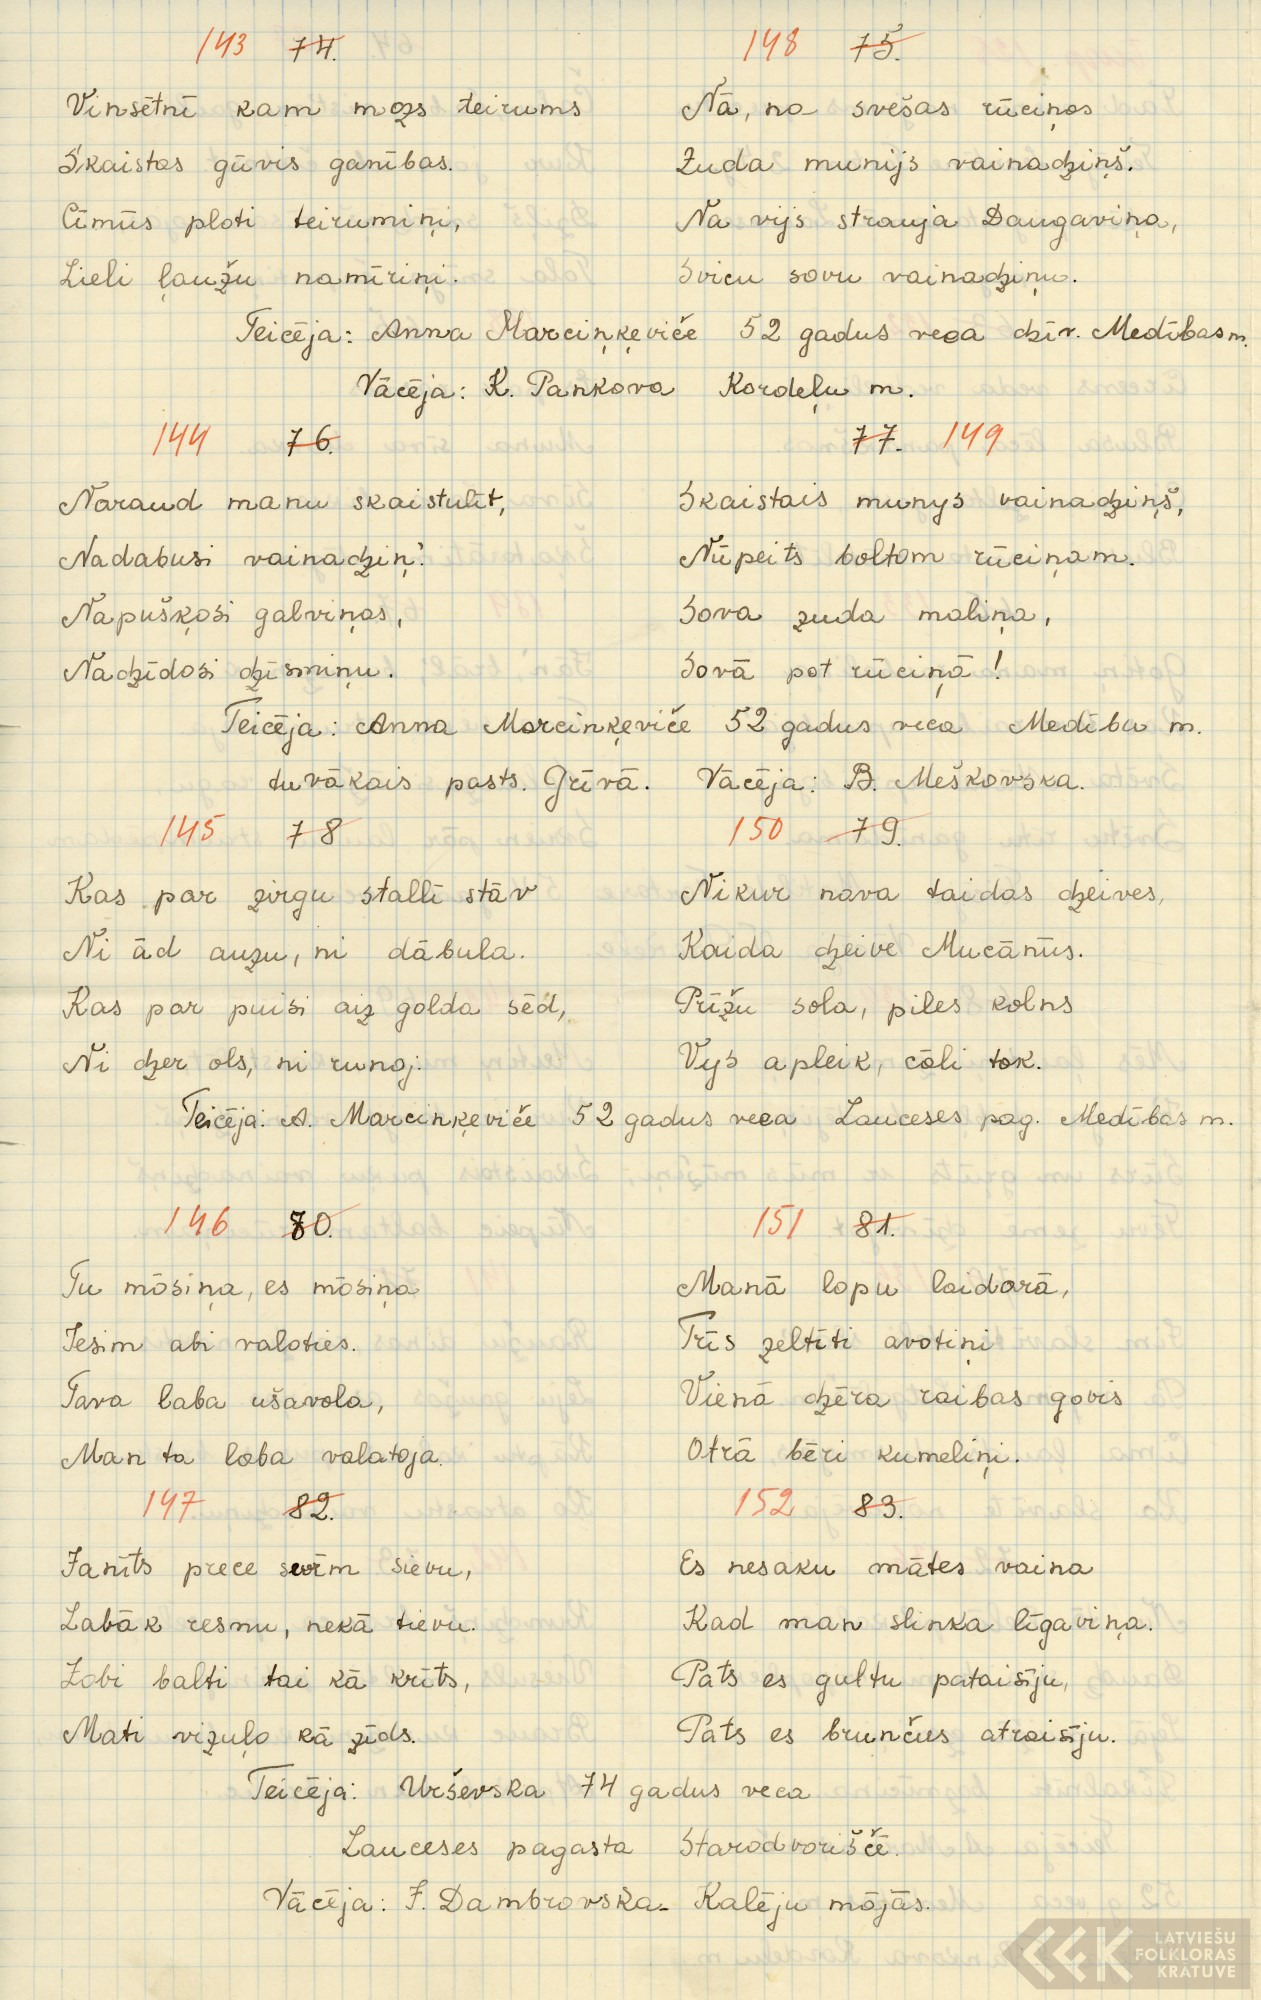 143 74.
Vinsētnī kam mozs teirums
Skaistas gūvis ganības.
Cīmūs ploti teirumiņi,
Lieli ļaužu namīriņi.
148 75.
Nā, no svešas rūciņas
Zuda munijs vainadziņš.
Na vijs strauja Daugaviņa,
Svicu sovu vainadziņu.
Teicēja: Anna Marciņķeviče 52 gadus veca dzīv. Medības m.
Vācēja: K. Pankova Kordeļu m.
144 76.
Naraud manu skaistulīt,
Nadabusi vainadziņ?
Napušķosi galviņas,
Nadzīdosi dzīsmiņu.
77. 149
Skaistais munys vainadziņš,
Nūpeits boltom rūciņam.
Sova zuda maliņa,
Sovā pot rūciņā!
Teicēja: Anna Morcinķeviče 52 gadus veca Medību m.
tuvākais pasts. Grīvā. Vācēja: B. Meškovska.
145 78
Kas par zirgu stallī stāv
Ni ād auzu, ni dābula.
Kas par puisi aiz golda sēd,
Ni dzer ols, ni runoj.
150 79.
Nikur nava taidas dzeives,
Kaida dzeive Mucānūs.
Prīžu sola, piles kolns
Vys apleik, cōli tok.
Teicēja: A. Marcinķeviče 52 gadus veca Lauceses pag. Medības m.
146 80.
Tu mōsiņa, es mōsiņa
Iesim abi valoties.
Tava laba ušavola,
Man ta loba valatoja.
151 81.
Manā lopu laidarā,
Trīs zeltīti avotiņi
Vienā dzēra raibas govis
Otrā bēri kumeliņi.
147 82.
Janīts prece sevīm sievu,
Labāk resnu, nekā tievu.
Zobi balti tai kā krīts,
Mati vizuļo kā zīds.
152 83.
Es nesaku mātes vaina
Kad man slinka līgaviņa.
Pats es gultu pataisīju,
Pats es brunčus atraisīju.
Teicēja: Urševska 74 gadus veca
Lauceses pagasta Starodvoriščē.
Vācēja: F. Dambrovska - Kalēju mājās.
LATVIEŠU
FOLKLORAS
KRĀTUVE